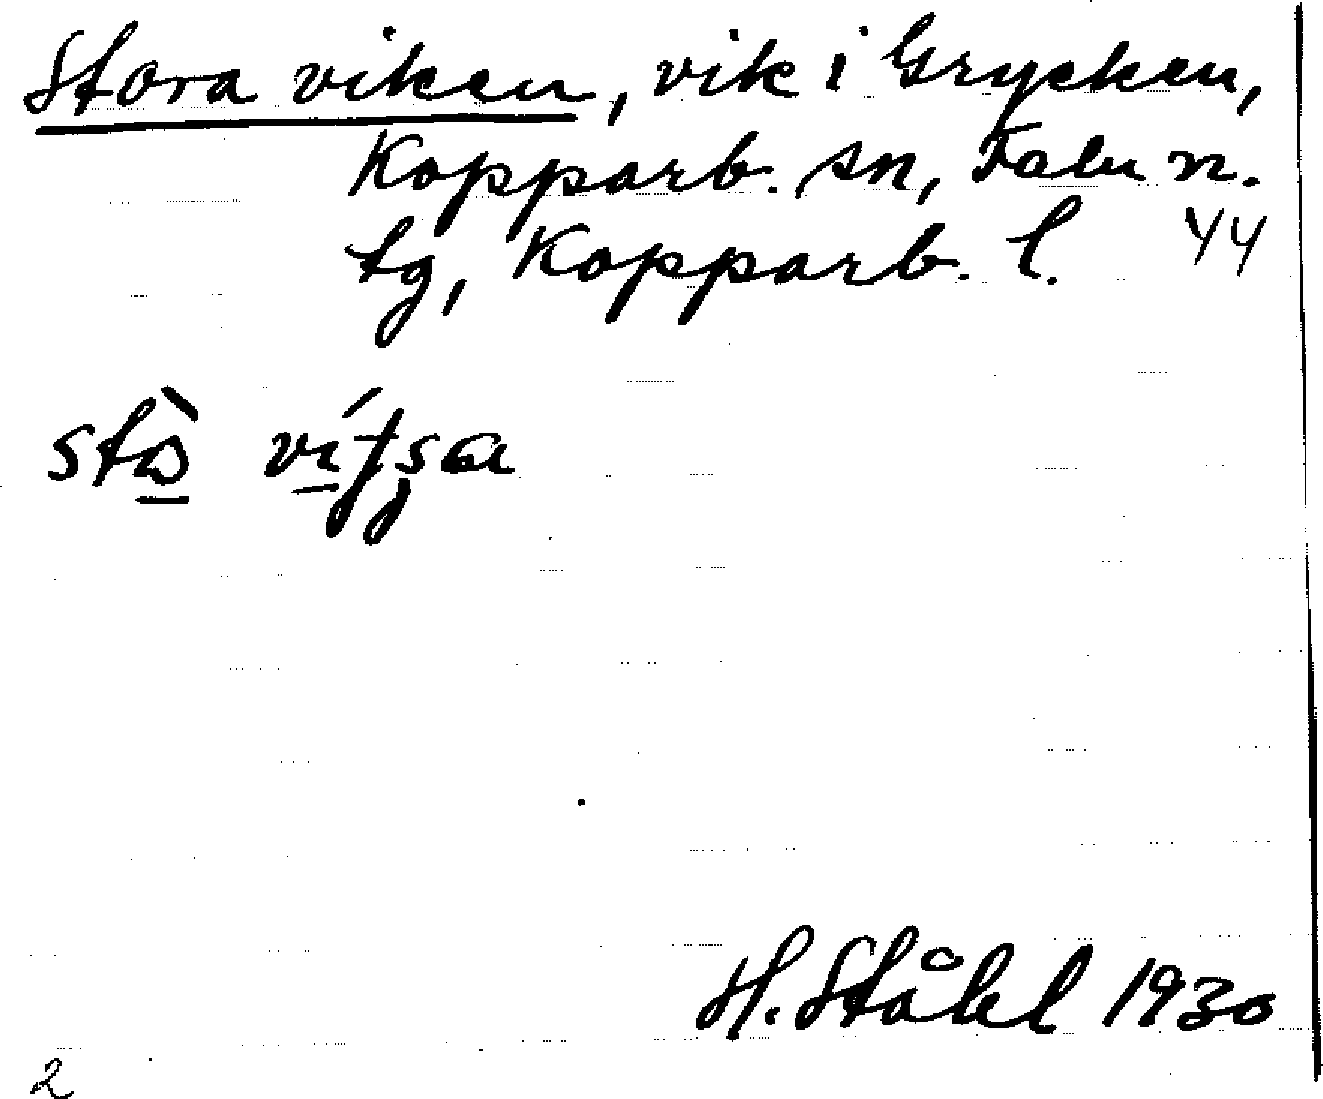 Stora viken, vik i Grycken,
Kopparb. sn, Falu n.
tg, Kopparb. l. 44
H. Ståhl 1930
2